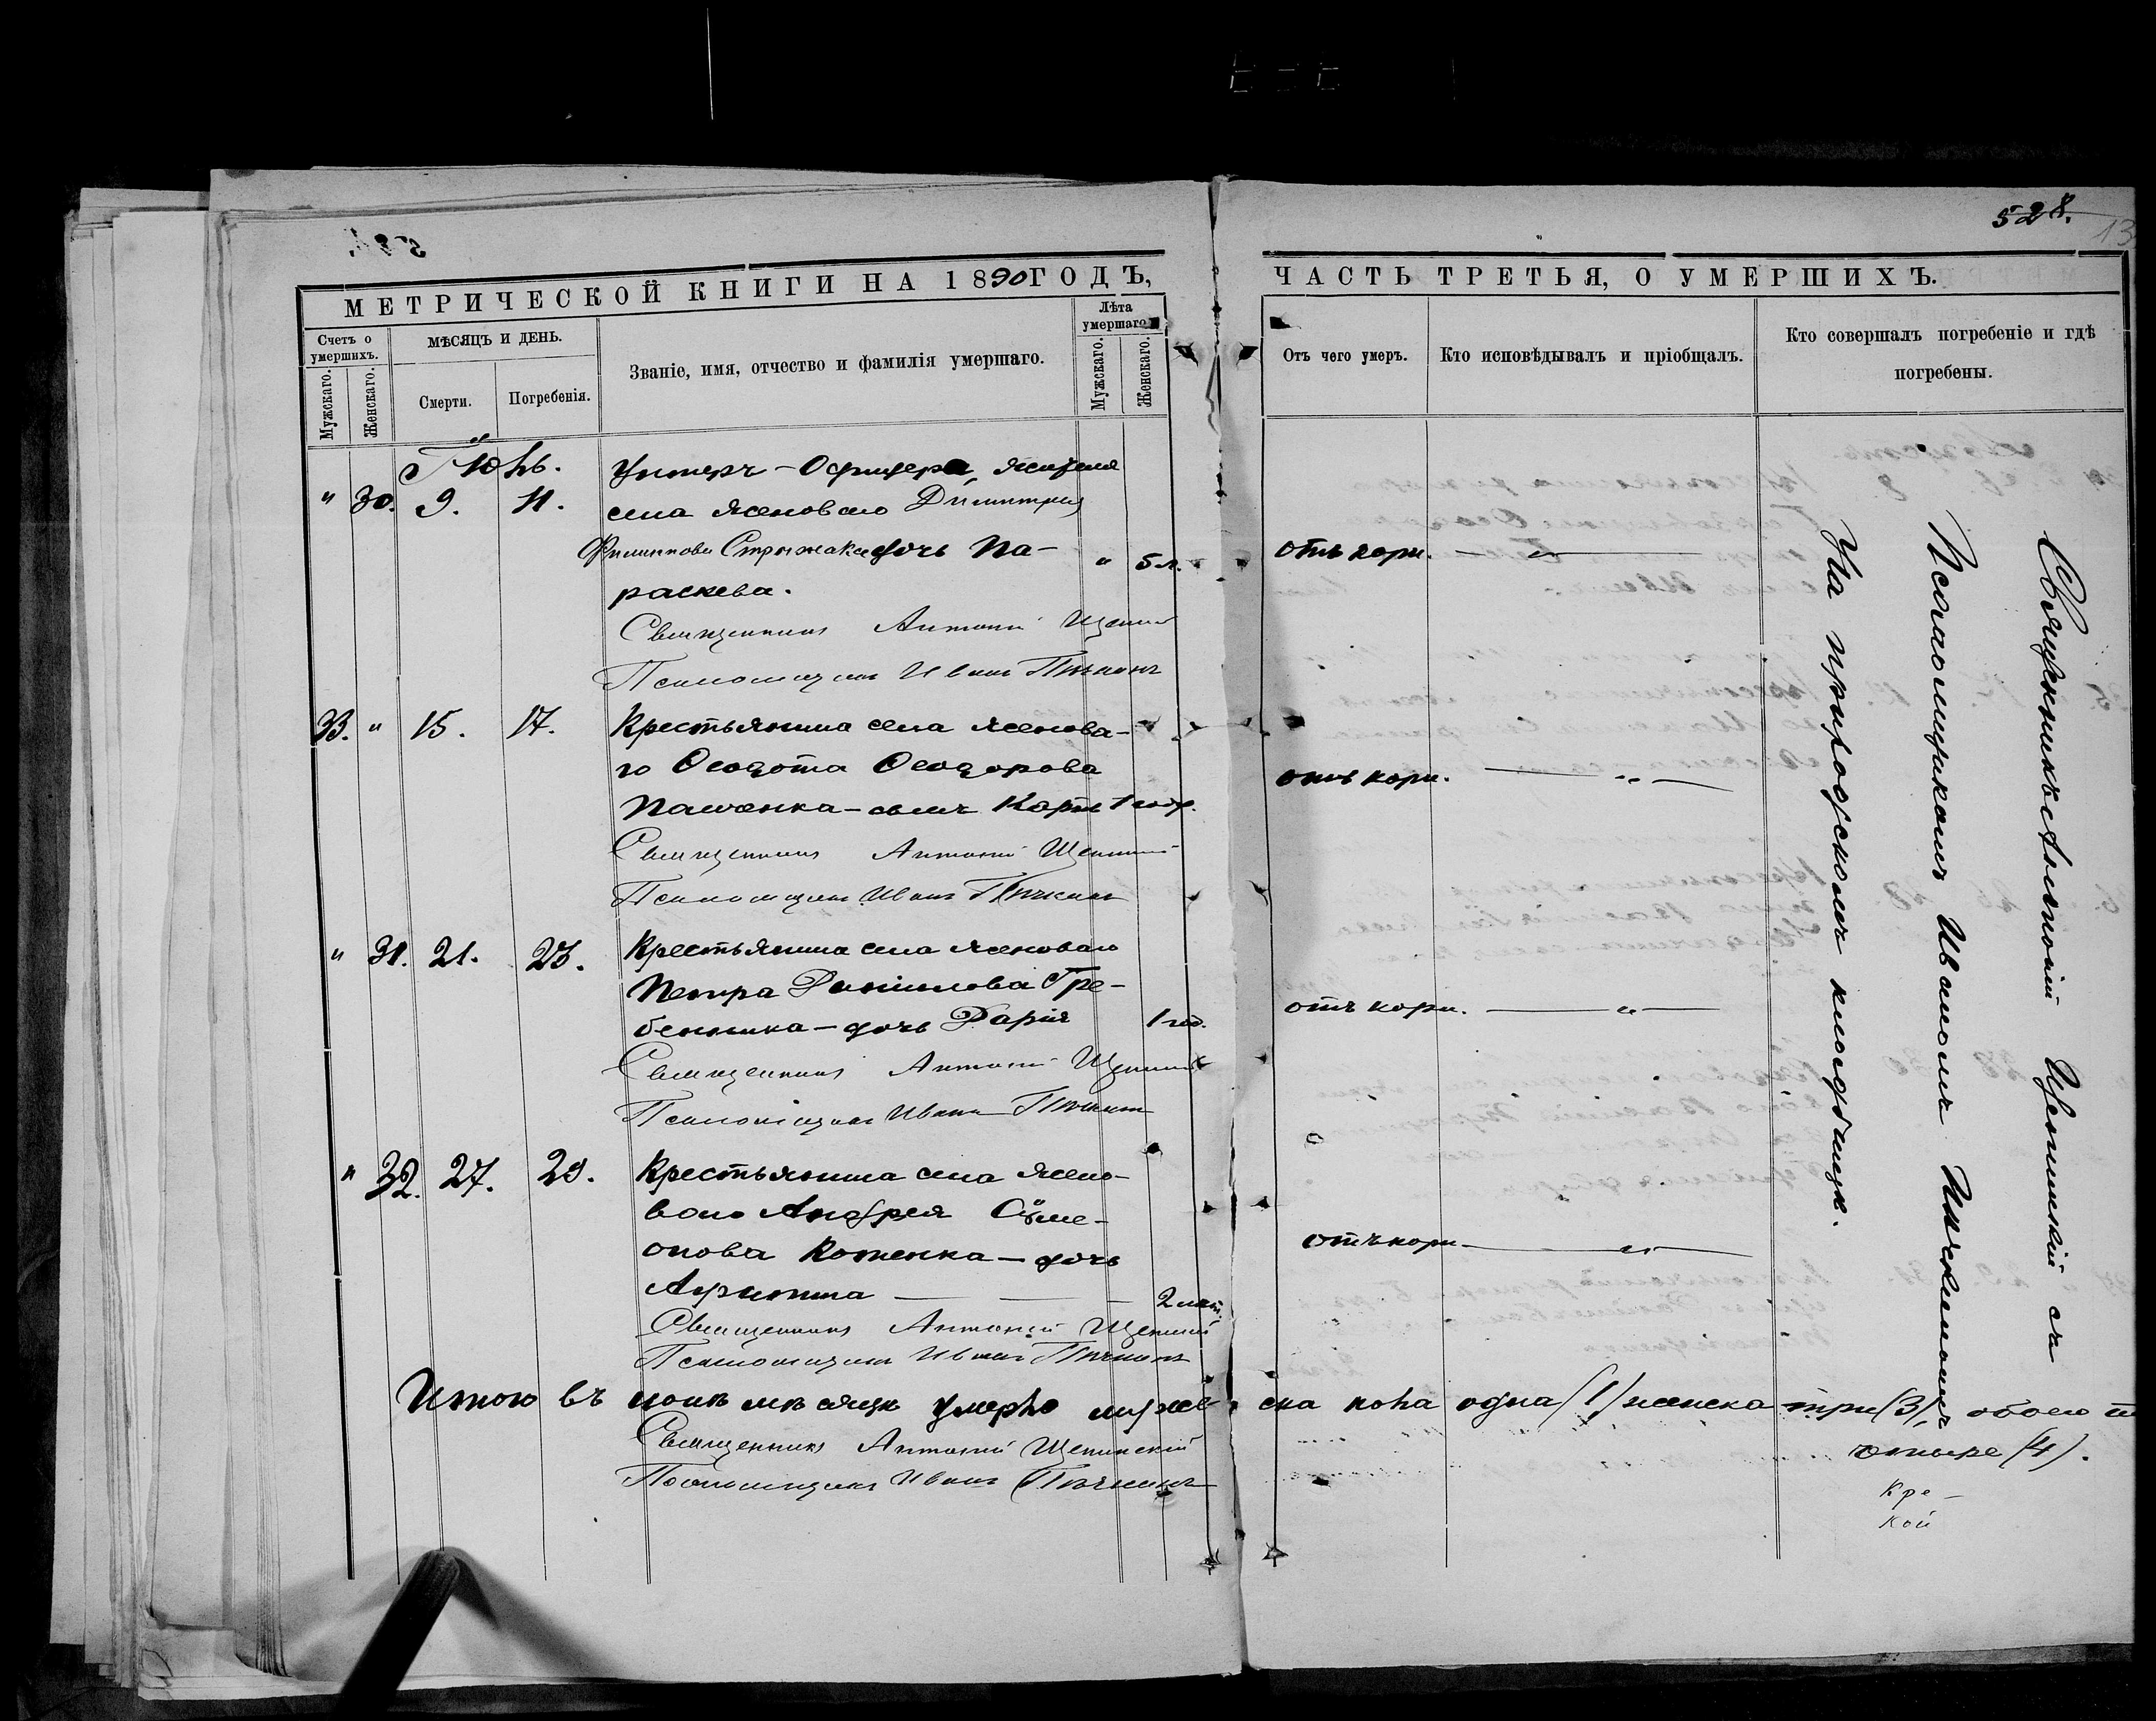 528.
13
МЕТРИЧЕСКОЙ КНИГИ НА 1890 ГОДЪ,
Счетъ о умершихъ.
Мужскаго.
Женскаго.
МѢСЯЦЪ И ДЕНЬ.
Смерти.
Погребенія.
Званіе, имя, отчество и фамилія умершаго.
Лѣта умершаго.
Мужскаго.
Женскаго.
ЧАСТЬ ТРЕТЬЯ, О УМЕРШИХЪ.
Отъ чего умеръ.
Кто исповѣдывалъ и пріобщалъ.
Кто совершалъ погребеніе и гдѣ
погребены.
Іюнь.
" 30. 9. 11.
Унтеръ-Офицера, жителя
села Ясеноваго Димитрія
Филиппова Стрижака дочь Па-
раскева.
" 5 л.
отъ кори. — " —
Священникъ Антоній
Псаломщикъ Иванъ Пичкинъ
33. " 15. 17.
Крестьянина села Ясенова-
го Ѳеодота Ѳеодорова
Пащенка - сынъ Карпъ 1 год.
отъ кори. — " —
Священникъ Антоній
Псаломщикъ Иванъ Пичкинъ
" 31. 21. 23.
Крестьянина села Ясеноваго
Петра Даніилова Гре-
бенника - дочь Дарія 1 год.
отъ кори. — " —
Священникъ Антоній
Псаломщикъ Иванъ Пичкинъ
" 32. 27. 29.
Крестьянина села Ясено-
ваго Андрея Сѵме-
онова Котенка - дочь
— 2 лѣт.
отъ кори — " —
Священникъ Антоній
Псаломщикъ Иванъ Пичкинъ
Итого въ іюнѣ мѣсяцѣ умерло мужес-ска пола одна (1) женска три (3), обоего
четыре (4).
Священникъ Антоній
Псаломщикъ Иванъ Пичкинъ
Кре-
кой
Священникъ Антоній съ
Псаломщикомъ Иваномъ Пичкинымъ
На приходскомъ кладбищѣ.